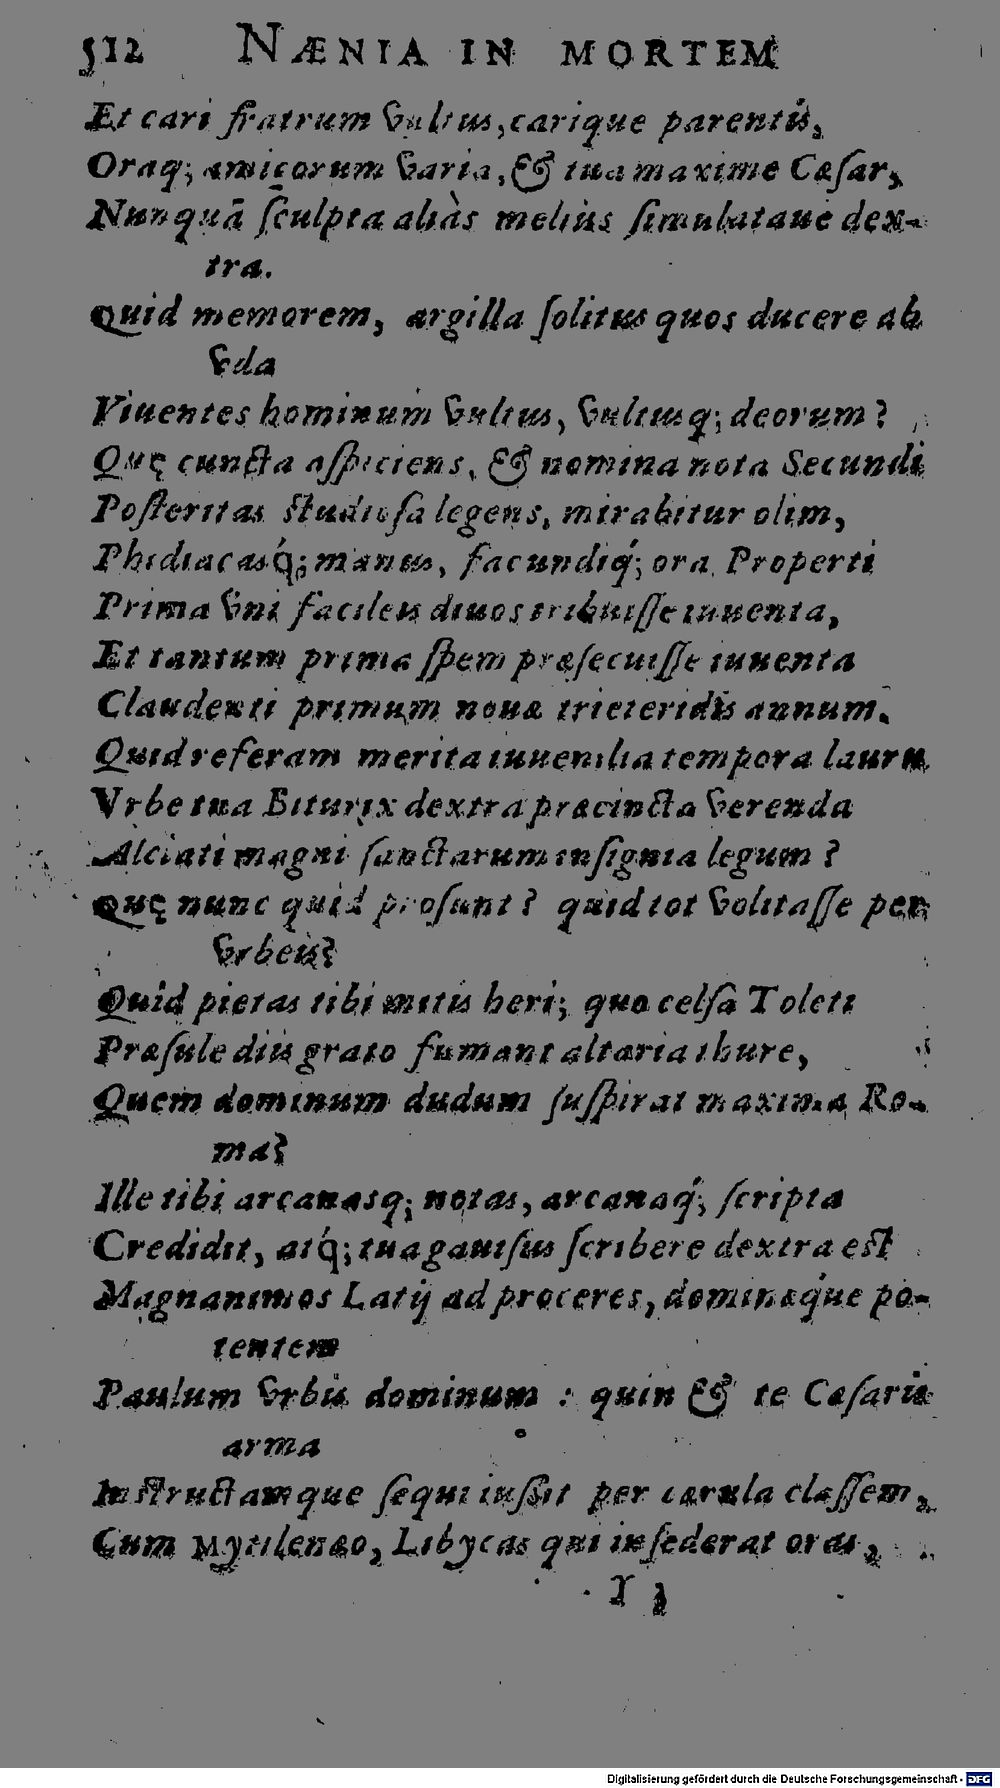 512 NÆNIA IN MORTEM
Et cari fratrum vultus, carique parentis,
Oraq; amicorum varia, & tua maxime Cæſar,
Nunquā ſculpta aliàs melius ſimulataue dex-
tra.
Quid memorem, argilla ſolitus quos ducere ab
vda
Viuentes hominum vultus, vultusq; deorum?
Quę cuncta aſpiciens, & nomina nota Secundi
Poſteritas ſtudioſa legens, mirabitur olim,
Phidiacasq́; manus, facundiq́; ora Properti
Prima vni faciles diuos tribuiſſe iuuenta,
Et tantum prima ſpem præſecuiſſe iuuenta
Claudenti primum nouæ trieteridis annum.
Quid referam merita iuuenilia tempora lauru
Vrbe tua Biturix dextra præcincta verenda
Alciati magni ſanctarum inſignia legum?
Quę nunc quid proſunt? quid tot volitaſſe per
vrbeis?
Quid pietas tibi mitis heri; quo celſa Toleti
Præſule diis grato fumant altaria thure,
Quem dominum dudum ſuſpirat maxima Ro-
ma?
Ille tibi arcanasq; notas, arcanaq́; ſcripta
Credidit, atq́; tua gauiſus ſcribere dextra eſt
Magnanimos Latij ad proceres, dominæq́ue po-
tentem
Paulum vrbis dominum: quin & te Cæſaris
arma
Inſtructamque ſequi iuſſit per cærula claſſem,
Cum Mytilenæo, Libycas qui inſederat oras,
Digitalisierung gefördert durch die Deutsche Forschungsgemeinschaft - DFG